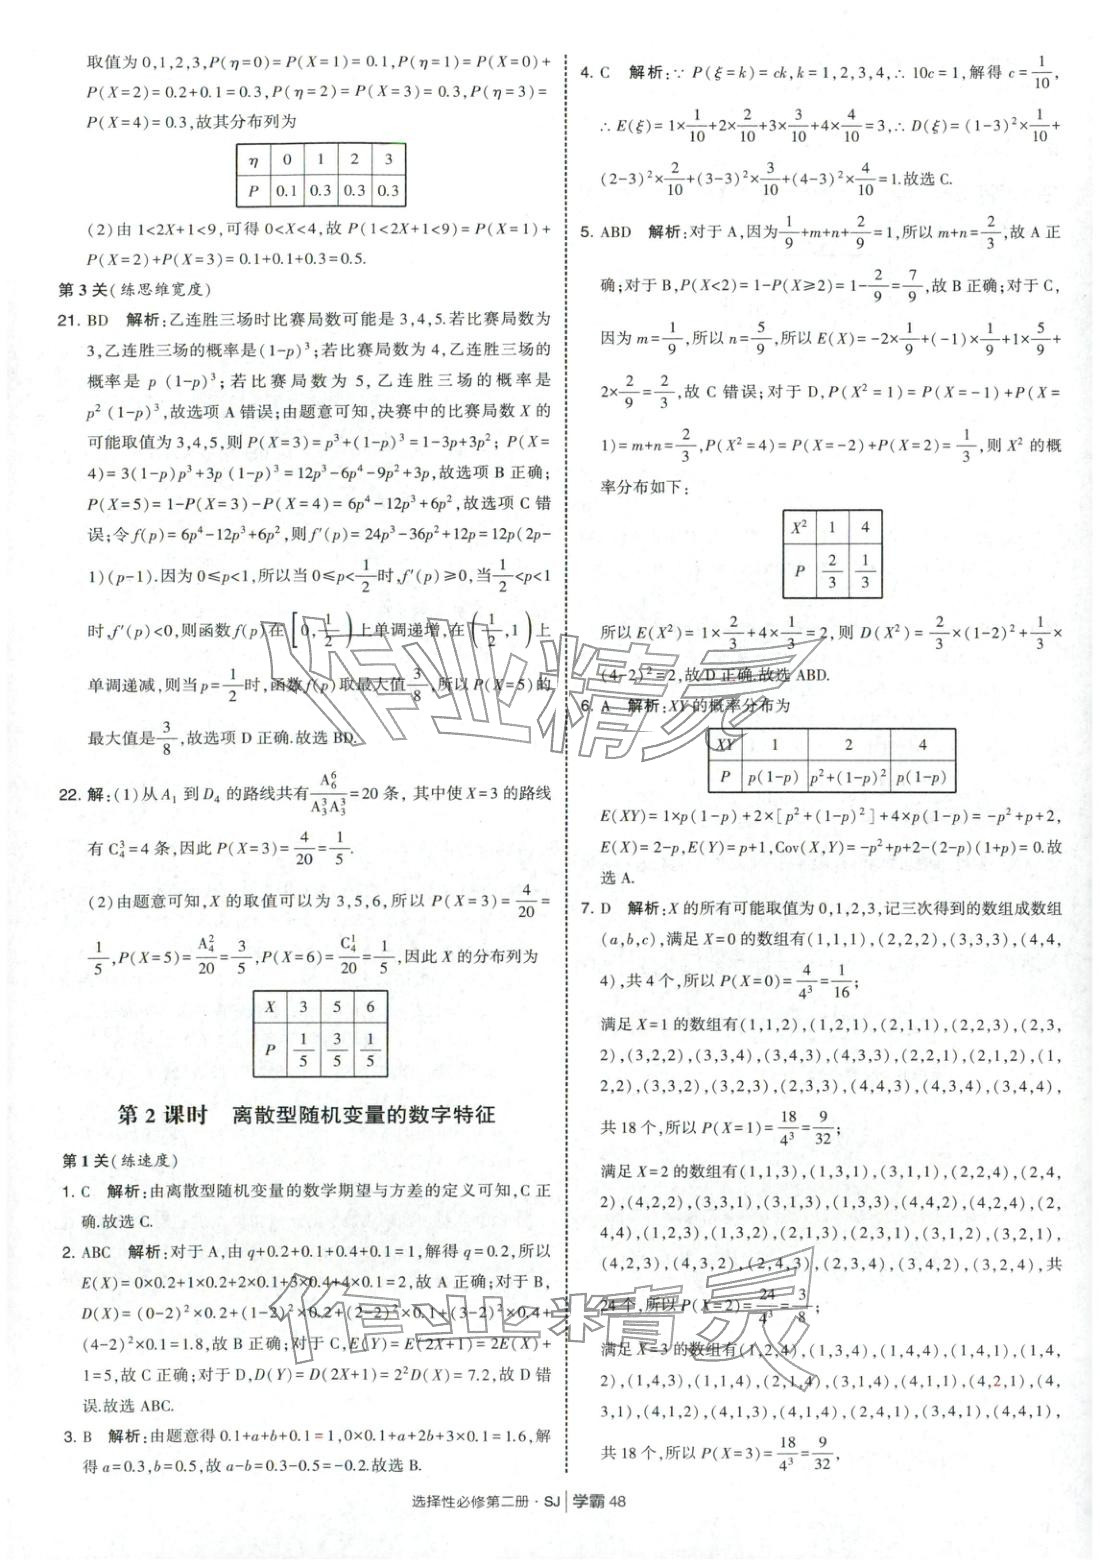 取值为0,1,2,3,P(η=0)=P(X=1)=0.1,P(η=1)=P(X=0)+
P(X=2)=0.2+0.1=0.3,P(η=2)=P(X=3)=0.3,P(η=3)=
P(X=4)=0.3,故其分布列为
η 0 1 2 3
P 0.1 0.3 0.3 0.3
(2)由1<2X+1<9,可得0<X<4,故P(1<2X+1<9)=P(X=1)+
P(X=2)+P(X=3)=0.1+0.1+0.3=0.5.
第3关(练思维宽度)
21. BD 解析:乙连胜三场时比赛局数可能是3,4,5.若比赛局数为
3,乙连胜三场的概率是(1-p)³;若比赛局数为4,乙连胜三场的
概率是p(1-p)³;若比赛局数为5,乙连胜三场的概率是
p²(1-p)³,故选项A错误;由题意可知,决赛中的比赛局数X的
可能取值为3,4,5,则P(X=3)=p³+(1-p)³=1-3p+3p²;P(X=
4)=3(1-p)p³+3p(1-p)³=12p³-6p⁴-9p²+3p,故选项B正确;
P(X=5)=1-P(X=3)-P(X=4)=6p⁴-12p³+6p²,故选项C错
误;令f(p)=6p⁴-12p³+6p²,则f′(p)=24p³-36p²+12p=12p(2p-
1)(p-1).因为0≤p<1,所以当0≤p<1/2时,f′(p)≥0,当1/2<p<1
时,f′(p)<0,则函数f(p)在[0,1/2)上单调递增,在(1/2,1)上
单调递减,则当p=1/2时,函数f(p)取最大值3/8,所以P(X=5)的
最大值是3/8,故选项D正确.故选BD.
22. 解:(1)从A₁到D₄的路线共有A₆⁶/(A₃³A₃³)=20条,其中使X=3的路线
有C₄³=4条,因此P(X=3)=4/20=1/5.
(2)由题意可知,X的取值可以为3,5,6,所以P(X=3)=4/20=
1/5,P(X=5)=A₄²/20=3/5,P(X=6)=C₄¹/20=1/5,因此X的分布列为
X 3 5 6
P 1/5 3/5 1/5
第2课时 离散型随机变量的数字特征
第1关(练速度)
1. C 解析:由离散型随机变量的数学期望与方差的定义可知,C正
确.故选C.
2. ABC 解析:对于A,由q+0.2+0.1+0.4+0.1=1,解得q=0.2,所以
E(X)=0×0.2+1×0.2+2×0.1+3×0.4+4×0.1=2,故A正确;对于B,
D(X)=(0-2)²×0.2+(1-2)²×0.2+(2-2)²×0.1+(3-2)²×0.4+
(4-2)²×0.1=1.8,故B正确;对于C,E(Y)=E(2X+1)=2E(X)+
1=5,故C正确;对于D,D(Y)=D(2X+1)=2²D(X)=7.2,故D错
误.故选ABC.
3. B 解析:由题意得0.1+a+b+0.1=1,0×0.1+a+2b+3×0.1=1.6,解
得a=0.3,b=0.5,故a-b=0.3-0.5=-0.2.故选B.
4. C 解析:∵P(ξ=k)=ck,k=1,2,3,4,∴10c=1,解得c=1/10,
∴E(ξ)=1×1/10+2×2/10+3×3/10+4×4/10=3,∴D(ξ)=(1-3)²×1/10+
(2-3)²×2/10+(3-3)²×3/10+(4-3)²×4/10=1.故选C.
5. ABD 解析:对于A,因为1/9+m+n+2/9=1,所以m+n=2/3,故A正
确;对于B,P(X<2)=1-P(X≥2)=1-2/9=7/9,故B正确;对于C,
因为m=1/9,所以n=5/9,所以E(X)=-2×1/9+(-1)×1/9+1×5/9+
2×2/9=2/3,故C错误;对于D,P(X²=1)=P(X=-1)+P(X=
1)=m+n=2/3,P(X²=4)=P(X=-2)+P(X=2)=1/3,则X²的概
率分布如下:
X² 1 4
P 2/3 1/3
所以E(X²)=1×2/3+4×1/3=2,则D(X²)=2/3×(1-2)²+1/3×
(4-2)²=2,故D正确.故选ABD.
6. A 解析:XY的概率分布为
XY 1 2 4
P p(1-p) p²+(1-p)² p(1-p)
E(XY)=1×p(1-p)+2×[p²+(1-p)²]+4×p(1-p)=-p²+p+2,
E(X)=2-p,E(Y)=p+1,Cov(X,Y)=-p²+p+2-(2-p)(1+p)=0.故
选A.
7. D 解析:X的所有可能取值为0,1,2,3,记三次得到的数组成数组
(a,b,c),满足X=0的数组有(1,1,1),(2,2,2),(3,3,3),(4,4,
4),共4个,所以P(X=0)=4/4³=1/16;
满足X=1的数组有(1,1,2),(1,2,1),(2,1,1),(2,2,3),(2,3,
2),(3,2,2),(3,3,4),(3,4,3),(4,3,3),(2,2,1),(2,1,2),(1,
2,2),(3,3,2),(3,2,3),(2,3,3),(4,4,3),(4,3,4),(3,4,4),
共18个,所以P(X=1)=18/4³=9/32;
满足X=2的数组有(1,1,3),(1,3,1),(3,1,1),(2,2,4),(2,4,
2),(4,2,2),(3,3,1),(3,1,3),(1,3,3),(4,4,2),(4,2,4),(2,
4,4),(1,2,3),(1,3,2),(2,1,3),(2,3,1),(3,1,2),(3,2,1),
(4,2,3),(4,3,2),(2,4,3),(2,3,4),(3,4,2),(3,2,4),共
24个,所以P(X=2)=24/4³=3/8;
满足X=3的数组有(1,2,4),(1,3,4),(1,4,4),(1,4,1),(1,4,
2),(1,4,3),(1,1,4),(2,1,4),(3,1,4),(4,1,1),(4,2,1),(4,
3,1),(4,1,2),(4,1,3),(4,1,4),(2,4,1),(3,4,1),(4,4,1),
共18个,所以P(X=3)=18/4³=9/32,
作业精灵
作业精灵
选择性必修第二册·SJ 学霸 48